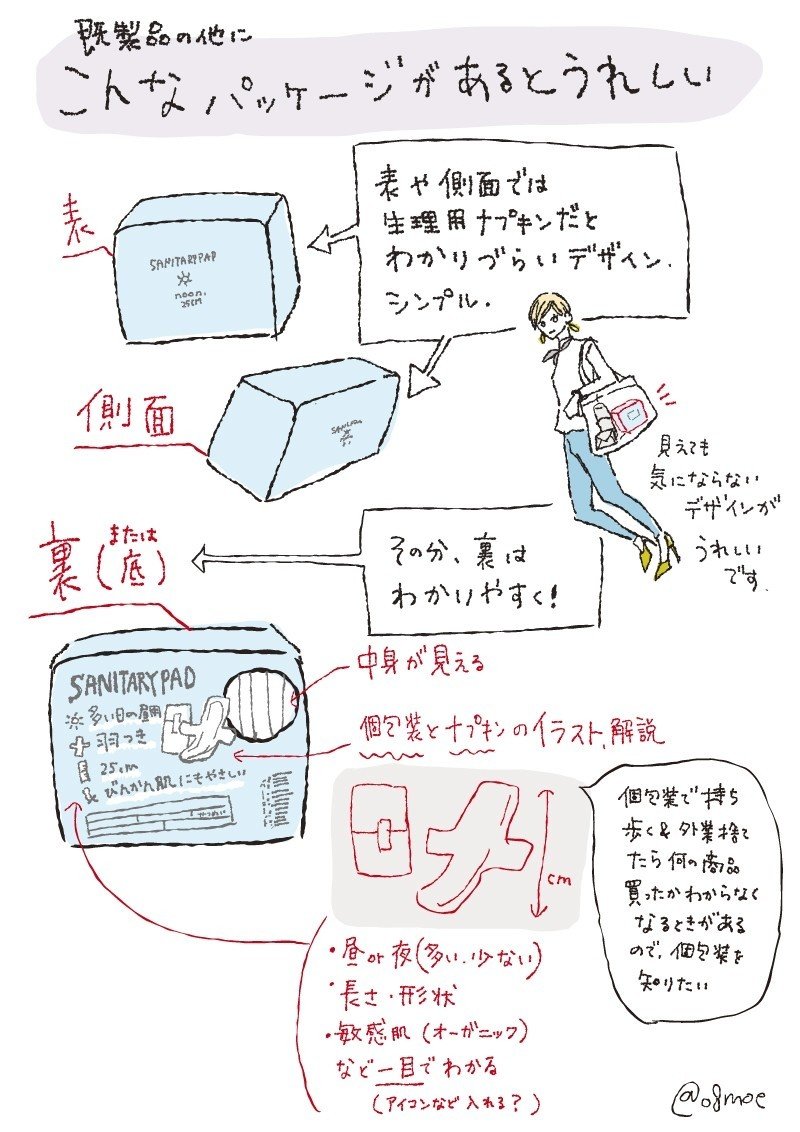 既製品の他に
こんなパッケージがあるとうれしい
表
SANITARY PAD
noon.
25cm
表や側面では
生理用ナプキンだと
わかりづらいデザイン.
シンプル.
側面
見えても
気にならない
デザインが
うれしい
です.
裏(または底)
その分、裏は
わかりやすく!
SANITARY PAD
多い日の昼用
羽つき
25cm
びんかん肌にもやさしい
中身が見える
個包装とナプキンのイラスト、解説
cm
個包装で持ち
歩く&外業捨て
たら何の商品
買ったかわからなく
なるときがある
ので、個包装を
知りたい
・昼or夜(多い.少ない)
・長さ・形状
・敏感肌(オーガニック)
など一目でわかる
(アイコンなど入れる?)
@08moe